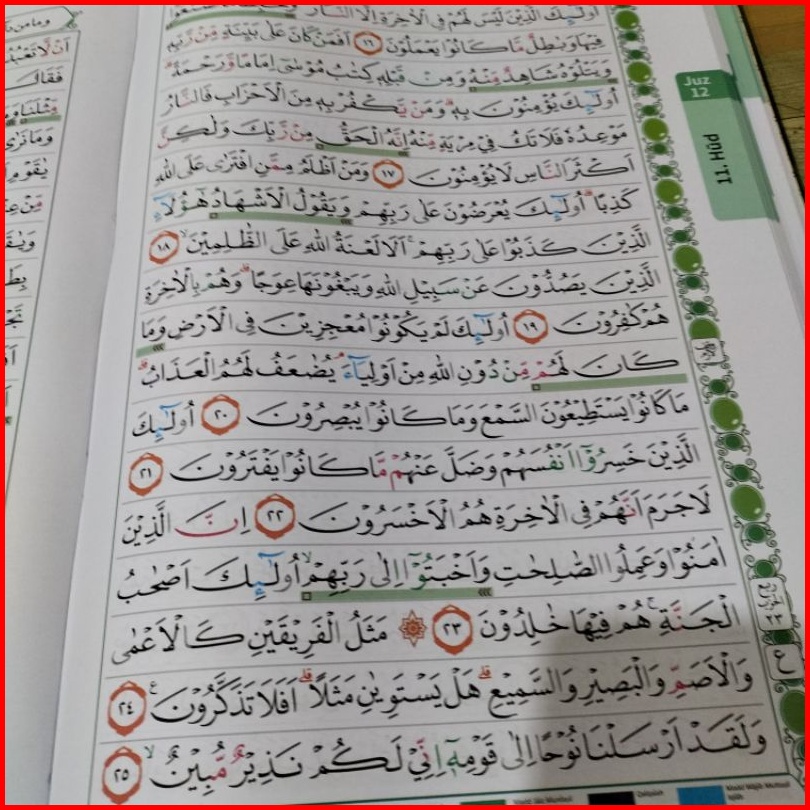 اُولٰۤىِٕكَ الَّذِيْنَ لَيْسَ لَهُمْ فِى الْاٰخِرَةِ اِلَّا النَّارُ
فِيْهَا وَبٰطِلٌ مَّا كَانُوْا يَعْمَلُوْنَ ١٦ اَفَمَنْ كَانَ عَلٰى بَيِّنَةٍ مِّنْ رَّبِّهٖ
وَيَتْلُوْهُ شَاهِدٌ مِّنْهُ وَمِنْ قَبْلِهٖ كِتٰبُ مُوْسٰىٓ اِمَامًا وَّرَحْمَةًۗ
اُولٰۤىِٕكَ يُؤْمِنُوْنَ بِهٖۗ وَمَنْ يَّكْفُرْ بِهٖ مِنَ الْاَحْزَابِ فَالنَّارُ
مَوْعِدُهٗ فَلَا تَكُ فِيْ مِرْيَةٍ مِّنْهُ اِنَّهُ الْحَقُّ مِنْ رَّبِّكَ وَلٰكِنَّ
اَكْثَرَ النَّاسِ لَا يُؤْمِنُوْنَ ١٧ وَمَنْ اَظْلَمُ مِمَّنِ افْتَرٰى عَلَى اللّٰهِ
كَذِبًاۗ اُولٰۤىِٕكَ يُعْرَضُوْنَ عَلٰى رَبِّهِمْ وَيَقُوْلُ الْاَشْهَادُ هٰٓؤُلَاۤءِ
الَّذِيْنَ كَذَبُوْا عَلٰى رَبِّهِمْۚ اَلَا لَعْنَةُ اللّٰهِ عَلَى الظّٰلِمِيْنَۙ ١٨
الَّذِيْنَ يَصُدُّوْنَ عَنْ سَبِيْلِ اللّٰهِ وَيَبْغُوْنَهَا عِوَجًاۗ وَهُمْ بِالْاٰخِرَةِ
هُمْ كٰفِرُوْنَ ١٩ اُولٰۤىِٕكَ لَمْ يَكُوْنُوْا مُعْجِزِيْنَ فِى الْاَرْضِ وَمَا
كَانَ لَهُمْ مِّنْ دُوْنِ اللّٰهِ مِنْ اَوْلِيَاۤءَۘ يُضٰعَفُ لَهُمُ الْعَذَابُۗ
مَا كَانُوْا يَسْتَطِيْعُوْنَ السَّمْعَ وَمَا كَانُوْا يُبْصِرُوْنَ ٢٠ اُولٰۤىِٕكَ
الَّذِيْنَ خَسِرُوْٓا اَنْفُسَهُمْ وَضَلَّ عَنْهُمْ مَّا كَانُوْا يَفْتَرُوْنَ ٢١
لَا جَرَمَ اَنَّهُمْ فِى الْاٰخِرَةِ هُمُ الْاَخْسَرُوْنَ ٢٢ اِنَّ الَّذِيْنَ
اٰمَنُوْا وَعَمِلُوا الصّٰلِحٰتِ وَاَخْبَتُوْٓا اِلٰى رَبِّهِمْۙ اُولٰۤىِٕكَ اَصْحٰبُ
الْجَنَّةِۚ هُمْ فِيْهَا خٰلِدُوْنَ ٢٣ ۞ مَثَلُ الْفَرِيْقَيْنِ كَالْاَعْمٰى
وَالْاَصَمِّ وَالْبَصِيْرِ وَالسَّمِيْعِۗ هَلْ يَسْتَوِيٰنِ مَثَلًاۗ اَفَلَا تَذَكَّرُوْنَ ࣖ ٢٤
وَلَقَدْ اَرْسَلْنَا نُوْحًا اِلٰى قَوْمِهٖٓ اِنِّيْ لَكُمْ نَذِيْرٌ مُّبِيْنٌۙ ٢٥
Juz
12
11. Hûd
ربع
الحزب
٢٣
ع